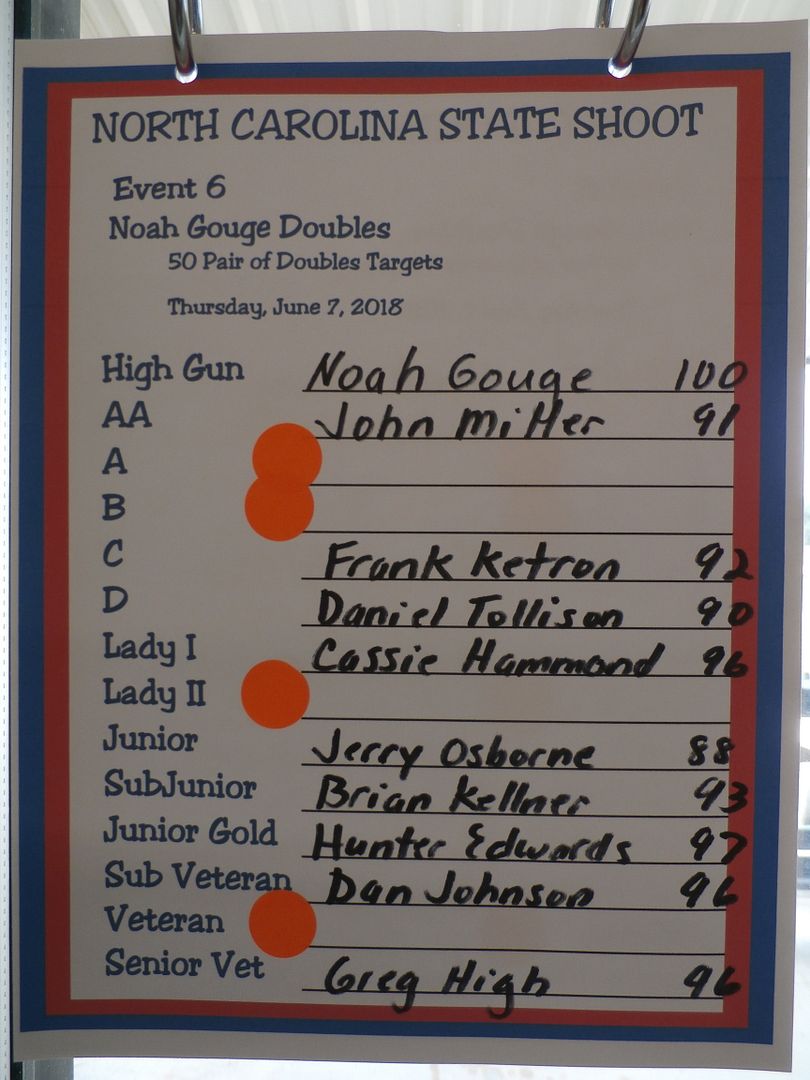 NORTH CAROLINA STATE SHOOT
Event 6
Noah Gouge Doubles
50 Pair of Doubles Targets
Thursday, June 7, 2018
High Gun Noah Gouge 100
AA John Miller 91
A
B
C Frank Ketron 92
D Daniel Tollison 90
Lady I Cassie Hammond 96
Lady II
Junior Jerry Osborne 88
SubJunior Brian Kellner 93
Junior Gold Hunter Edwards 97
Sub Veteran Dan Johnson 96
Veteran
Senior Vet Greg High 96